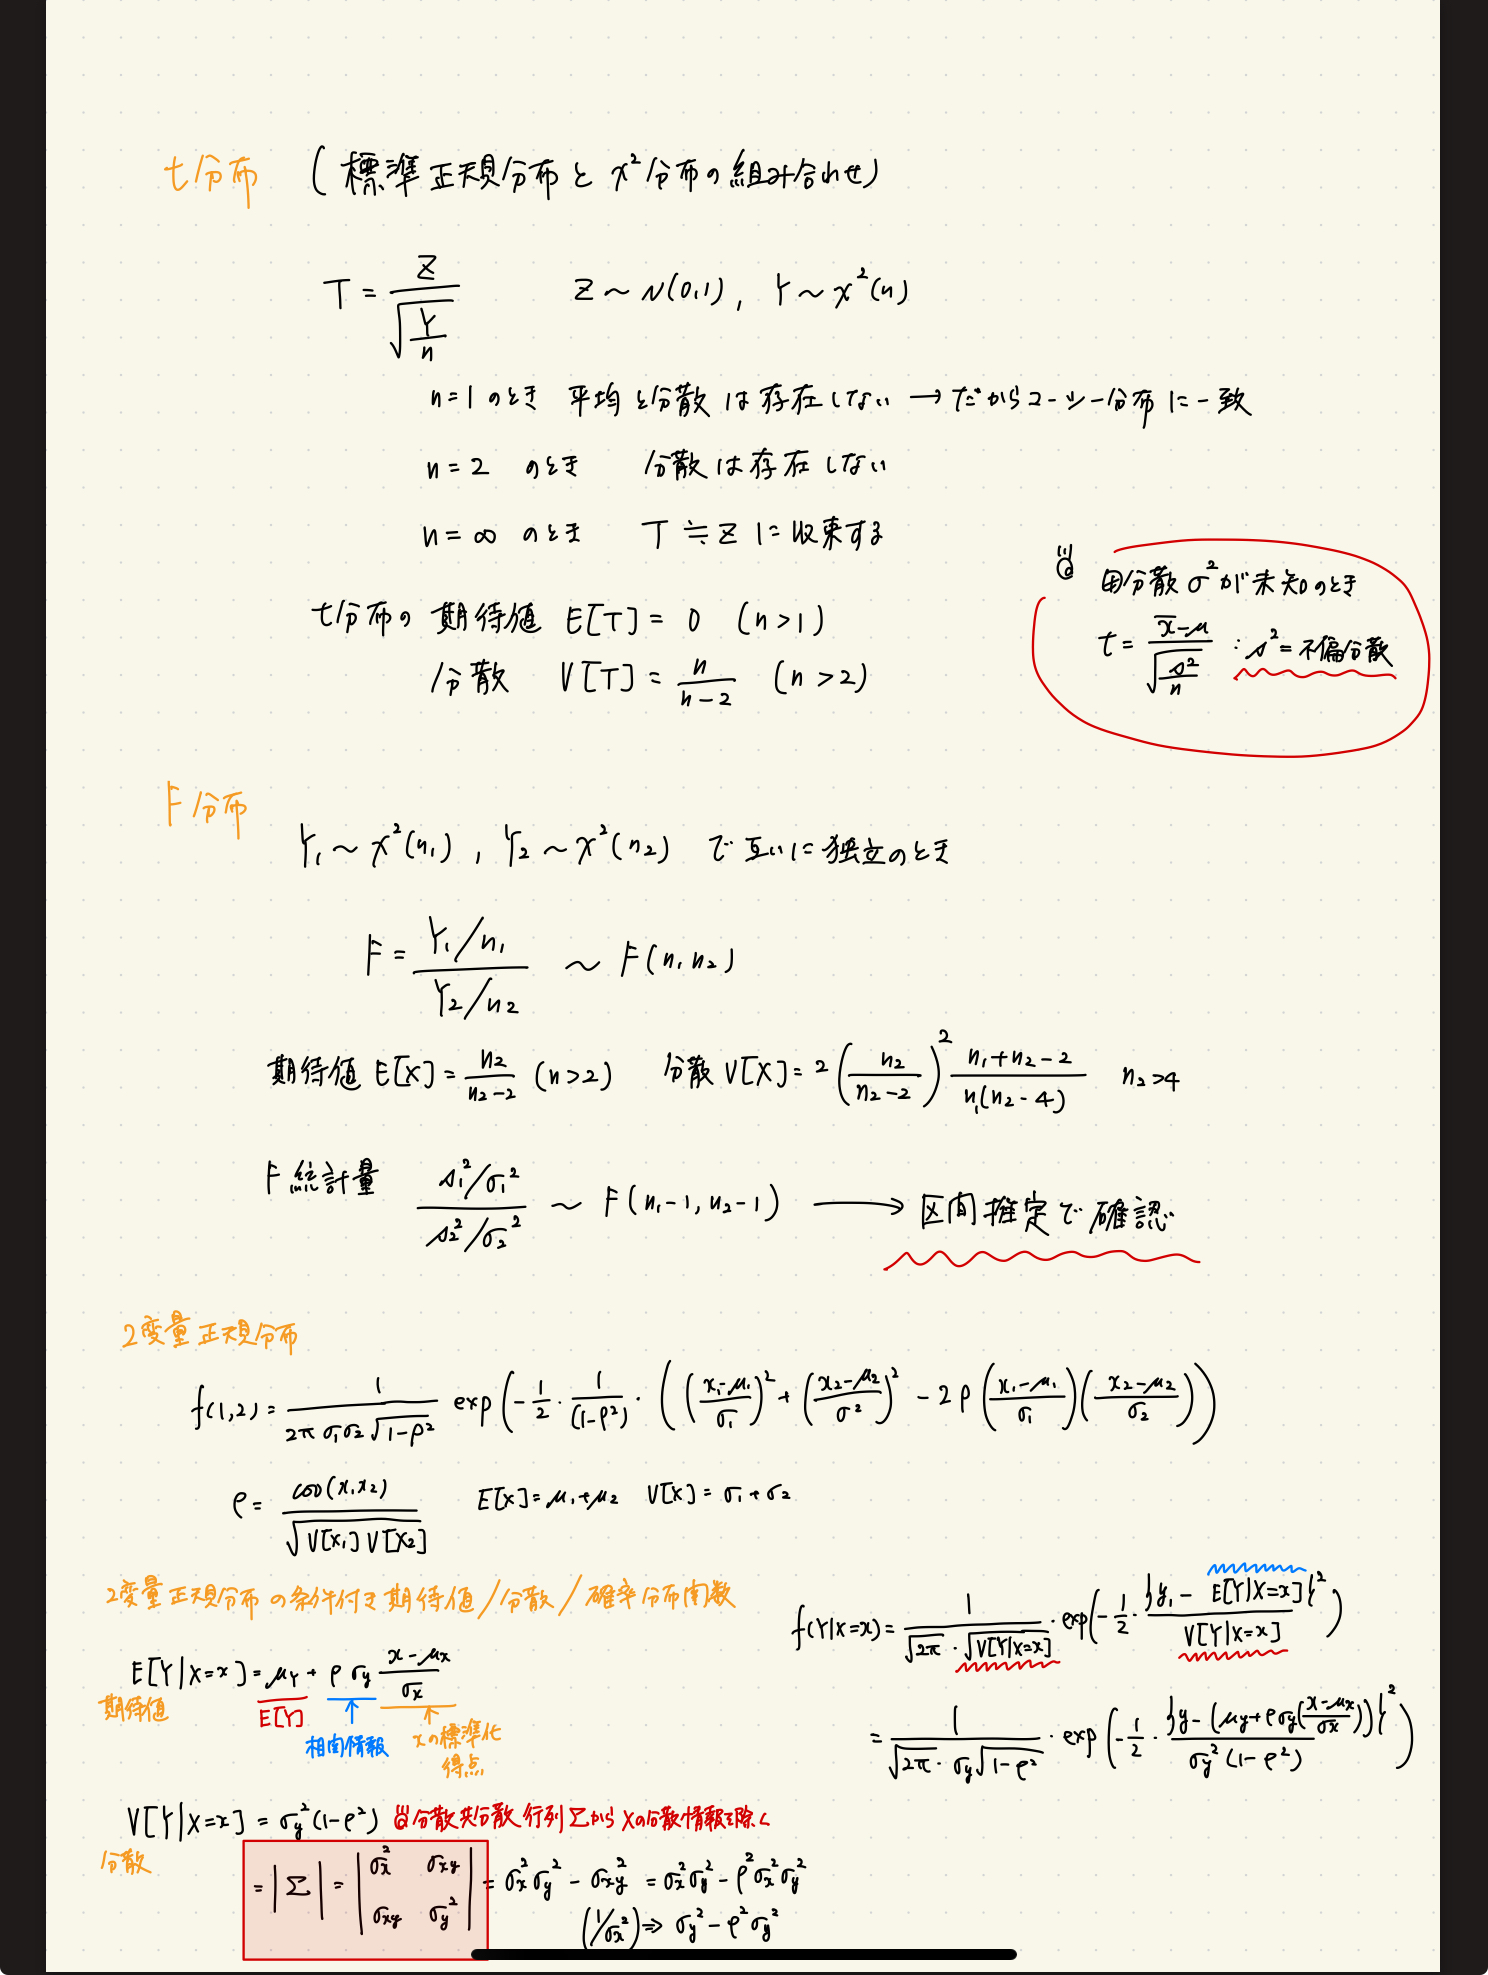 t分布 (標準正規分布と χ²分布の組み合わせ)
T = Z / √(Y/n)   Z ~ N(0,1), Y ~ χ²(n)
n=1 のとき 平均と分散は存在しない → だからコーシー分布に一致
n=2 のとき 分散は存在しない
n=∞ のとき T ≒ Z に収束する
t分布の 期待値 E[T] = 0 (n>1)
分散 V[T] = n/(n-2) (n>2)
母分散 σ²が未知のとき
t = (x̄-μ) / √(s²/n) : s²=不偏分散
F分布
Y₁ ~ χ²(n₁), Y₂ ~ χ²(n₂) で互いに独立のとき
F = (Y₁/n₁) / (Y₂/n₂) ~ F(n₁ n₂)
期待値 E[X] = n₂/(n₂-2) (n>2) 分散 V[X] = 2(n₂/(n₂-2))² (n₁+n₂-2)/(n₁(n₂-4)) n₂>4
F統計量 (s₁²/σ₁²) / (s₂²/σ₂²) ~ F(n₁-1, n₂-1) → 区間推定で確認
2変量正規分布
f(1,2) = 1/(2π σ₁σ₂ √(1-ρ²)) exp(-1/2 · 1/(1-ρ²) · (((x₁-μ₁)/σ₁)² + ((x₂-μ₂)/σ²)² - 2ρ((x₁-μ₁)/σ₁)((x₂-μ₂)/σ₂)))
ρ = cov(x₁x₂) / √(V[x₁] V[X₂])   E[x] = μ₁+μ₂   V[x] = σ₁+σ₂
2変量正規分布の条件付き期待値/分散/確率分布関数
E[Y|X=x] = μY + ρ σy (x-μx)/σx
期待値
E[Y]
相関情報
xの標準化
得点
f(Y|X=x) = 1/(√2π · √V[Y|X=x]) · exp(-1/2 · {y₁ - E[Y|X=x]}² / V[Y|X=x])
= 1/(√2π · σy√(1-ρ²)) · exp(-1/2 · {y-(μy+ρσy((x-μx)/σx))}² / (σy²(1-ρ²)))
V[Y|X=x] = σy²(1-ρ²) 分散共分散行列Σから Xの分散情報を除く
分散
= |Σ| = | σx² σxy | = σx²σy² - σxy² = σx²σy² - ρ²σx²σy²
| σxy σy² | (1/σx²) ⇒ σy² - ρ²σy²